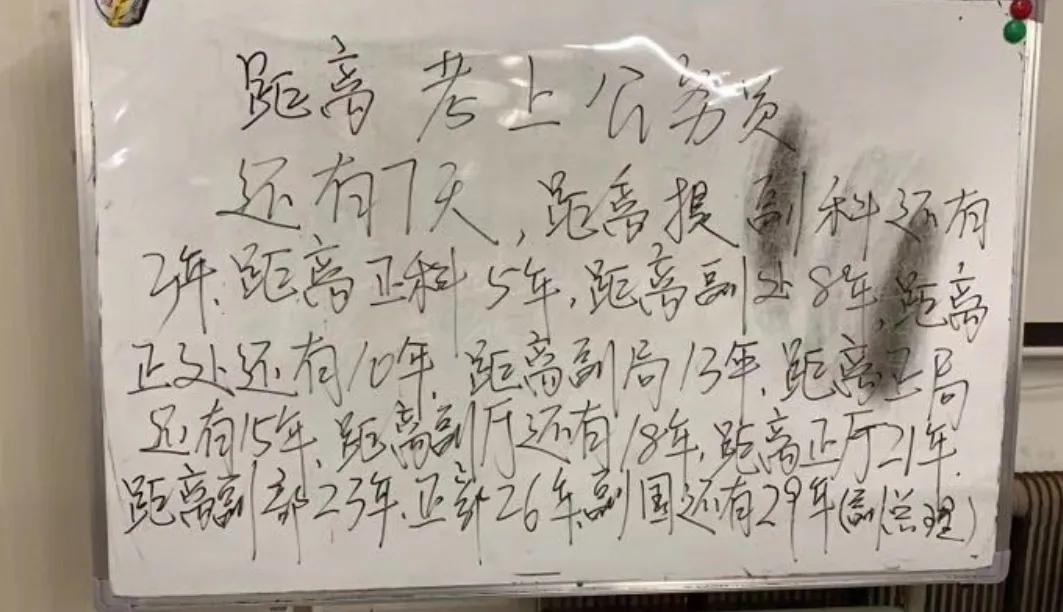 距离考上公务员
还有7天,距离提副科还有
2年.距离正科5年,距离副处8年,距离
正处还有10年.距离副局13年.距离正局
还有15年.距离副厅还有18年,距离正厅21年.
距离副部23年.正部26年.副国还有29年(副总理)